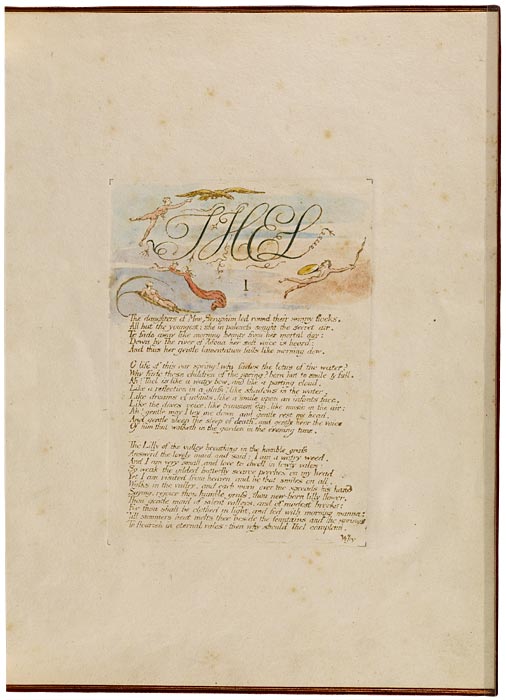 THEL
I
The daughters of Mne Seraphim led round their sunny flocks.
All but the youngest; she in paleness sought the secret air.
To fade away like morning beauty from her mortal day:
Down by the river of Adona her soft voice is heard:
And thus her gentle lamentation falls like morning dew.
O life of this our spring! why fades the lotus of the water?
Why fade these children of the spring? born but to smile & fall.
Ah! Thel is like a watry bow, and like a parting cloud.
Like a reflection in a glass. like shadows in the water.
Like dreams of infants, like a smile upon an infants face,
Like the doves voice, like transient day, like music in the air;
Ah! gentle may I lay me down, and gentle rest my head.
And gentle sleep the sleep of death. and gentle hear the voice
Of him that walketh in the garden in the evening time.
The Lilly of the valley breathing in the humble grass
Answer'd the lovely maid and said; I am a watry weed,
And I am very small, and love to dwell in lowly vales;
So weak, the gilded butterfly scarce perches on my head
Yet I am visited from heaven and he that smiles on all.
Walks in the valley, and each morn over me spreads his hand
Saying, rejoice thou humble grass, thou new-born lilly flower,
Thou gentle maid of silent valleys, and of modest brooks:
For thou shalt be clothed in light, and fed with morning manna:
Till summers heat melts thee beside the fountains and the springs
To flourish in eternal vales: then why should Thel complain,
Why